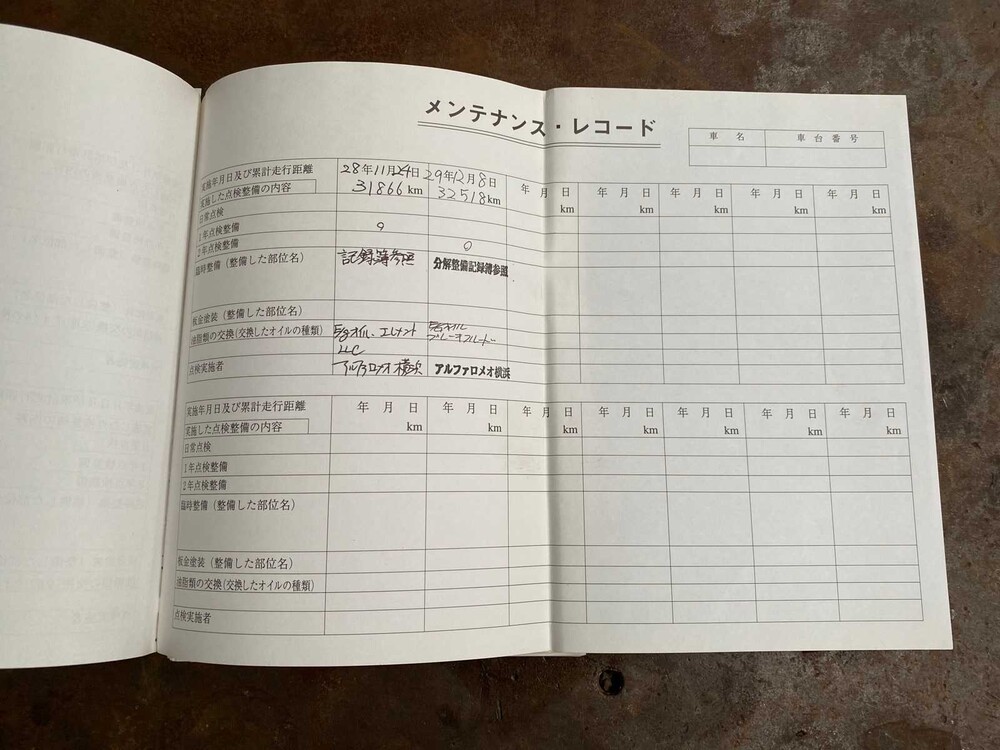 メンテナンス・レコード
車 名 車 台 番 号
実施年月日及び累計走行距離 28年11月24日 29年12月8日 年 月 日 年 月 日 年 月 日 年 月 日 年 月 日
実施した点検整備の内容 31866km 32518km km km km km km
日常点検
1年点検整備 ○
2年点検整備 ○
臨時整備(整備した部位名) 記録簿参照 分解整備記録簿参照
板金塗装(整備した部位名)
油脂類の交換(交換したオイルの種類) オイル、エレメント オイル
LLC ブレーキフルード
点検実施者 アルファロメオ横浜 アルファロメオ横浜
実施年月日及び累計走行距離 年 月 日 年 月 日 年 月 日 年 月 日 年 月 日 年 月 日 年 月 日
実施した点検整備の内容 km km km km km km km
日常点検
1年点検整備
2年点検整備
臨時整備(整備した部位名)
板金塗装(整備した部位名)
油脂類の交換(交換したオイルの種類)
点検実施者